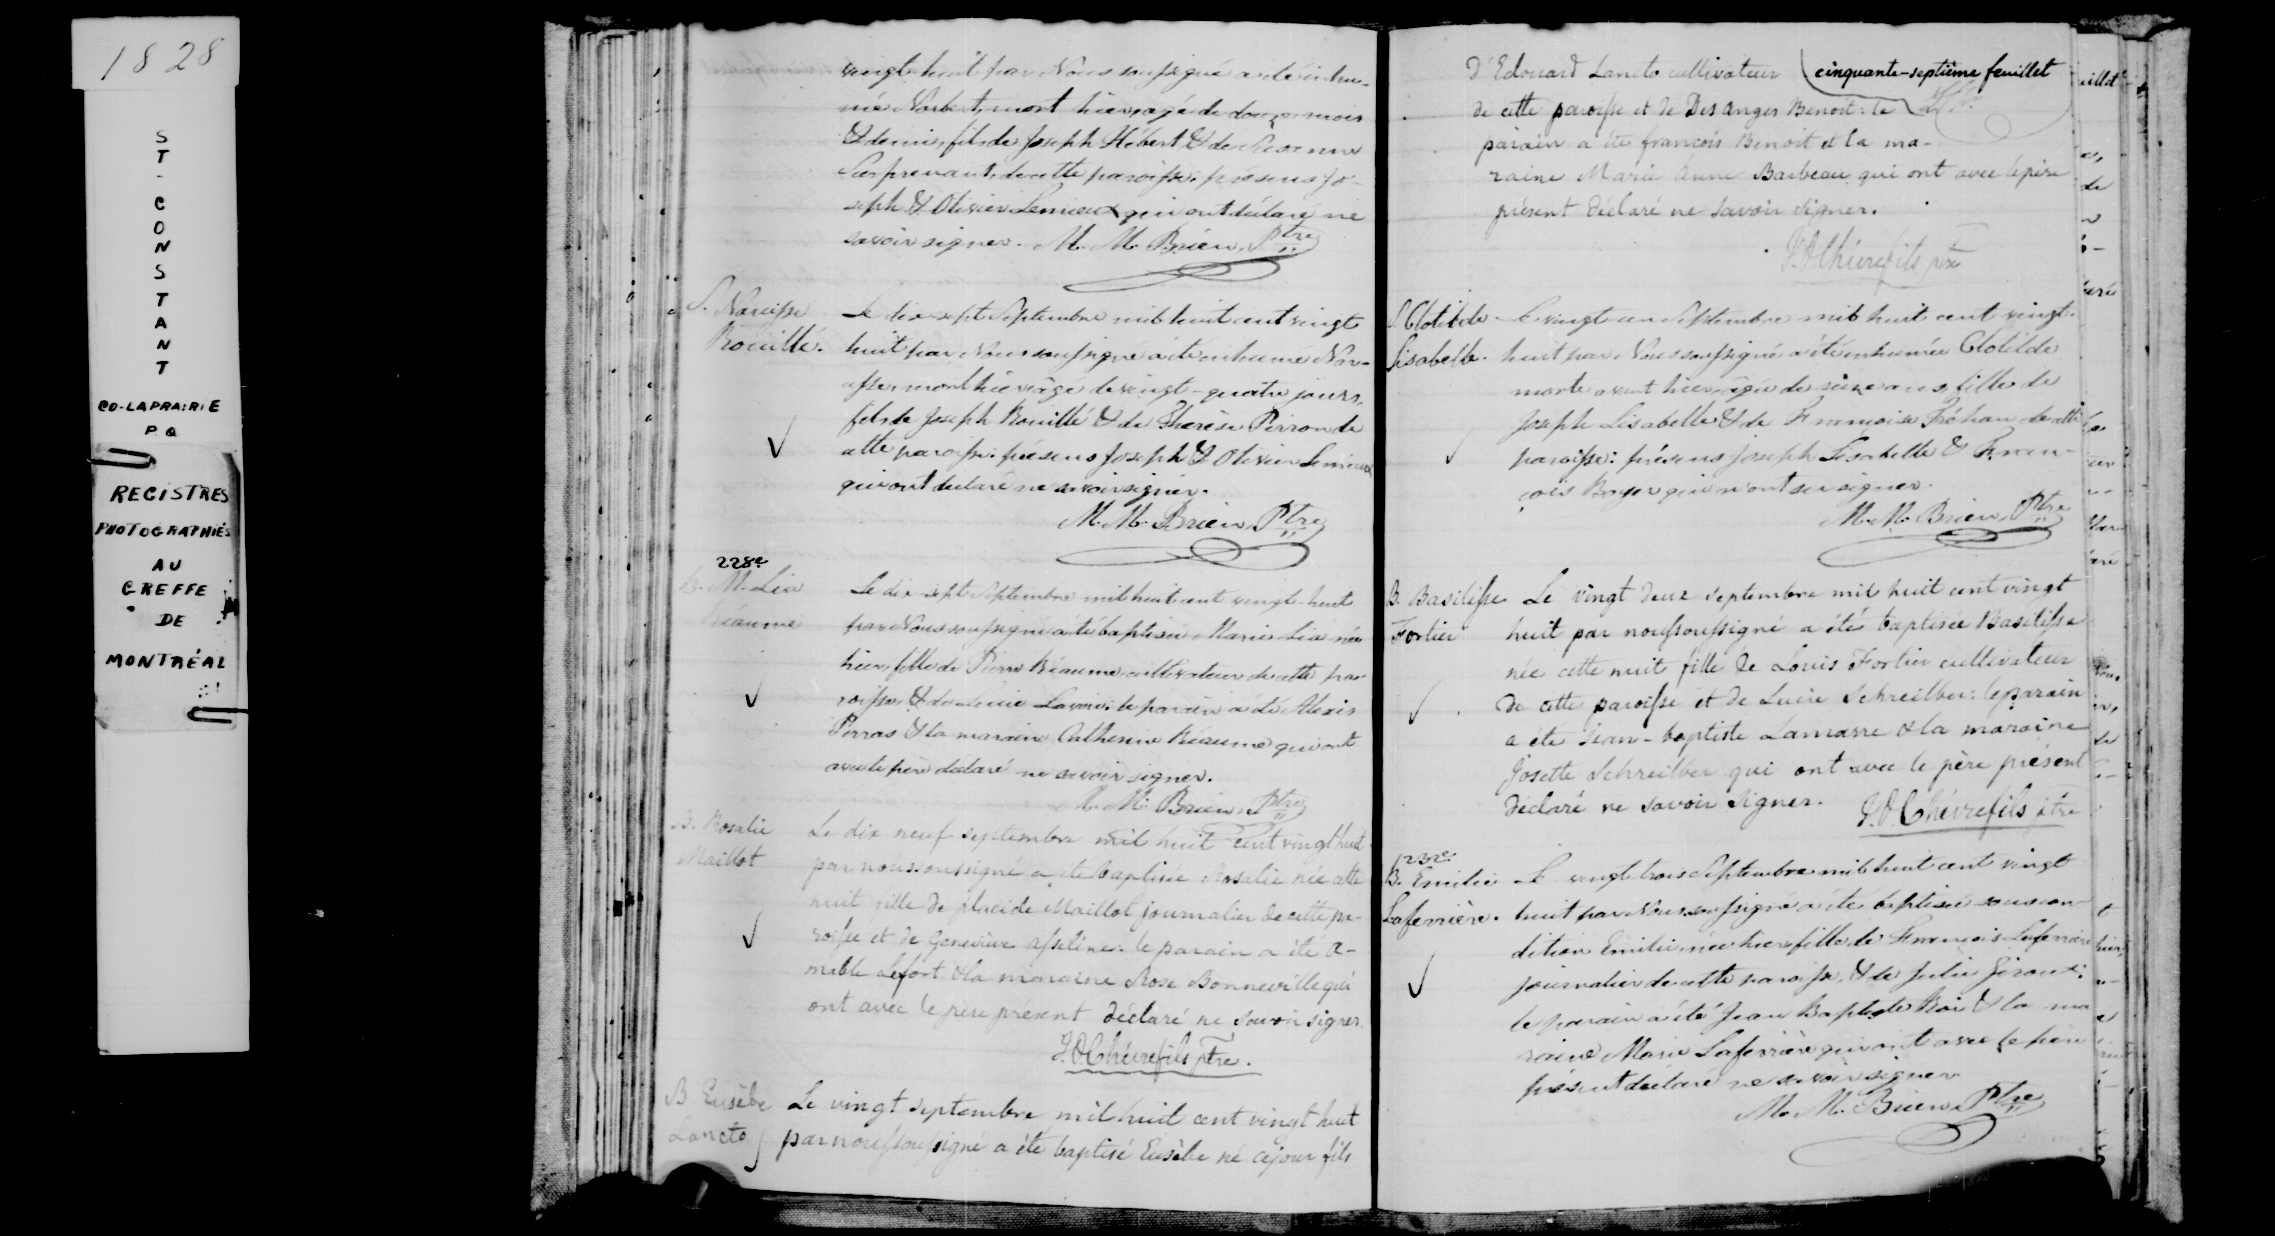 1828
ST-CONSTANT
CO-LAPRAIRIE
PQ
REGISTRES
PHOTOGRAPHIÉS
AU
GREFFE
DE
MONTRÉAL
vingt-huit par Nous soussigné a été inhu-
mé Norbert, mort hier, âgé de douze mois
& demi, fils de Joseph Hébert & de
Surprenant, de cette paroisse. présens Jo-
seph & Olivier Lemieux qui ont déclaré ne
savoir signer. M. M. Brien, Ptre
S. Narcisse
Rouillé.
Le dix-sept Septembre mil huit cent vingt
huit par Nous soussigné a été inhumé Nar-
cisse, mort hier âgé de vingt-quatre jours,
fils de Joseph Rouillé & de Thérèse Pirron de
cette paroisse: présens Joseph & Olivier Lemieux
qui ont déclaré ne savoir signer.
M. M. Brien, Ptre
228e
B. M. Lia
Réaume
Le dix-sept Septembre mil huit cent vingt-huit
par Nous soussigné a été baptisée Marie Lia née
hier, fille de Pierre Réaume cultivateur de cette pa-
roisse & de Lucie Lavoie: le parain a été Alexis
Perras & la maraine Catherine Réaume qui ont
avec le père déclaré ne savoir signer.
M. M. Brien, Ptre
B. Rosalie
Maillot
Le dix neuf septembre mil huit cent vingt huit
par nous soussigné a été baptisée Rosalie née cette
nuit fille de placide Maillot journalier de cette pa-
roisse et de Geneviève asseline: le parain a été A-
mable Lefort & la maraine Rose Bonneville qui
ont avec le père présent déclaré ne savoir signer
J.O Chèvrefils ptre.
B Eusèbe
Lancto
Le vingt septembre mil huit cent vingt huit
par nous soussigné a été baptisé Eusèbe né ce jour fils
D'Edouard Lancto cultivateur
cinquante-septième feuillet
de cette paroisse et de Desanges Benoit: le
parain a été françois Benoit et la ma-
raine Marie Anne Barbeau qui ont avec le père
présent déclaré ne savoir signer.
J.O Chèvrefils ptre
S. Clotilde
Lisabelle.
Le vingt un Septembre mil huit cent vingt-
huit par Nous soussigné a été inhumée Clotilde
morte avant hier, âgée de seize ans, fille de
Joseph Lisabelle & de Françoise de cette
paroisse: présens Joseph Lisabelle & Fran-
çois Boyer qui n'ont su signer.
M. M. Brien, Ptre
B. Basilisse
Fortier
Le vingt deux septembre mil huit cent vingt
huit par nous soussigné a été baptisée Basilisse
née cette nuit fille de Louis Fortier cultivateur
de cette paroisse et de Lucie Schreilber: le parain
a été Jean-baptiste Lamarre & la maraine
Josette Schreilber qui ont avec le père présent
déclaré ne savoir signer. J.O. Chèvrefils ptre
232e
B. Emilie
Laferrière.
Le vingt-trois Septembre mil huit cent vingt
huit par Nous soussigné a été baptisée sous con-
dition Emilie née hier fille de François Laferrière
journalier de cette paroisse, & de Julie Giroux:
le parain a été Jean Baptiste Roi & la ma
raine Marie Laferrière qui ont avec le père
présent déclaré ne savoir signer
M. M. Brien, Ptre